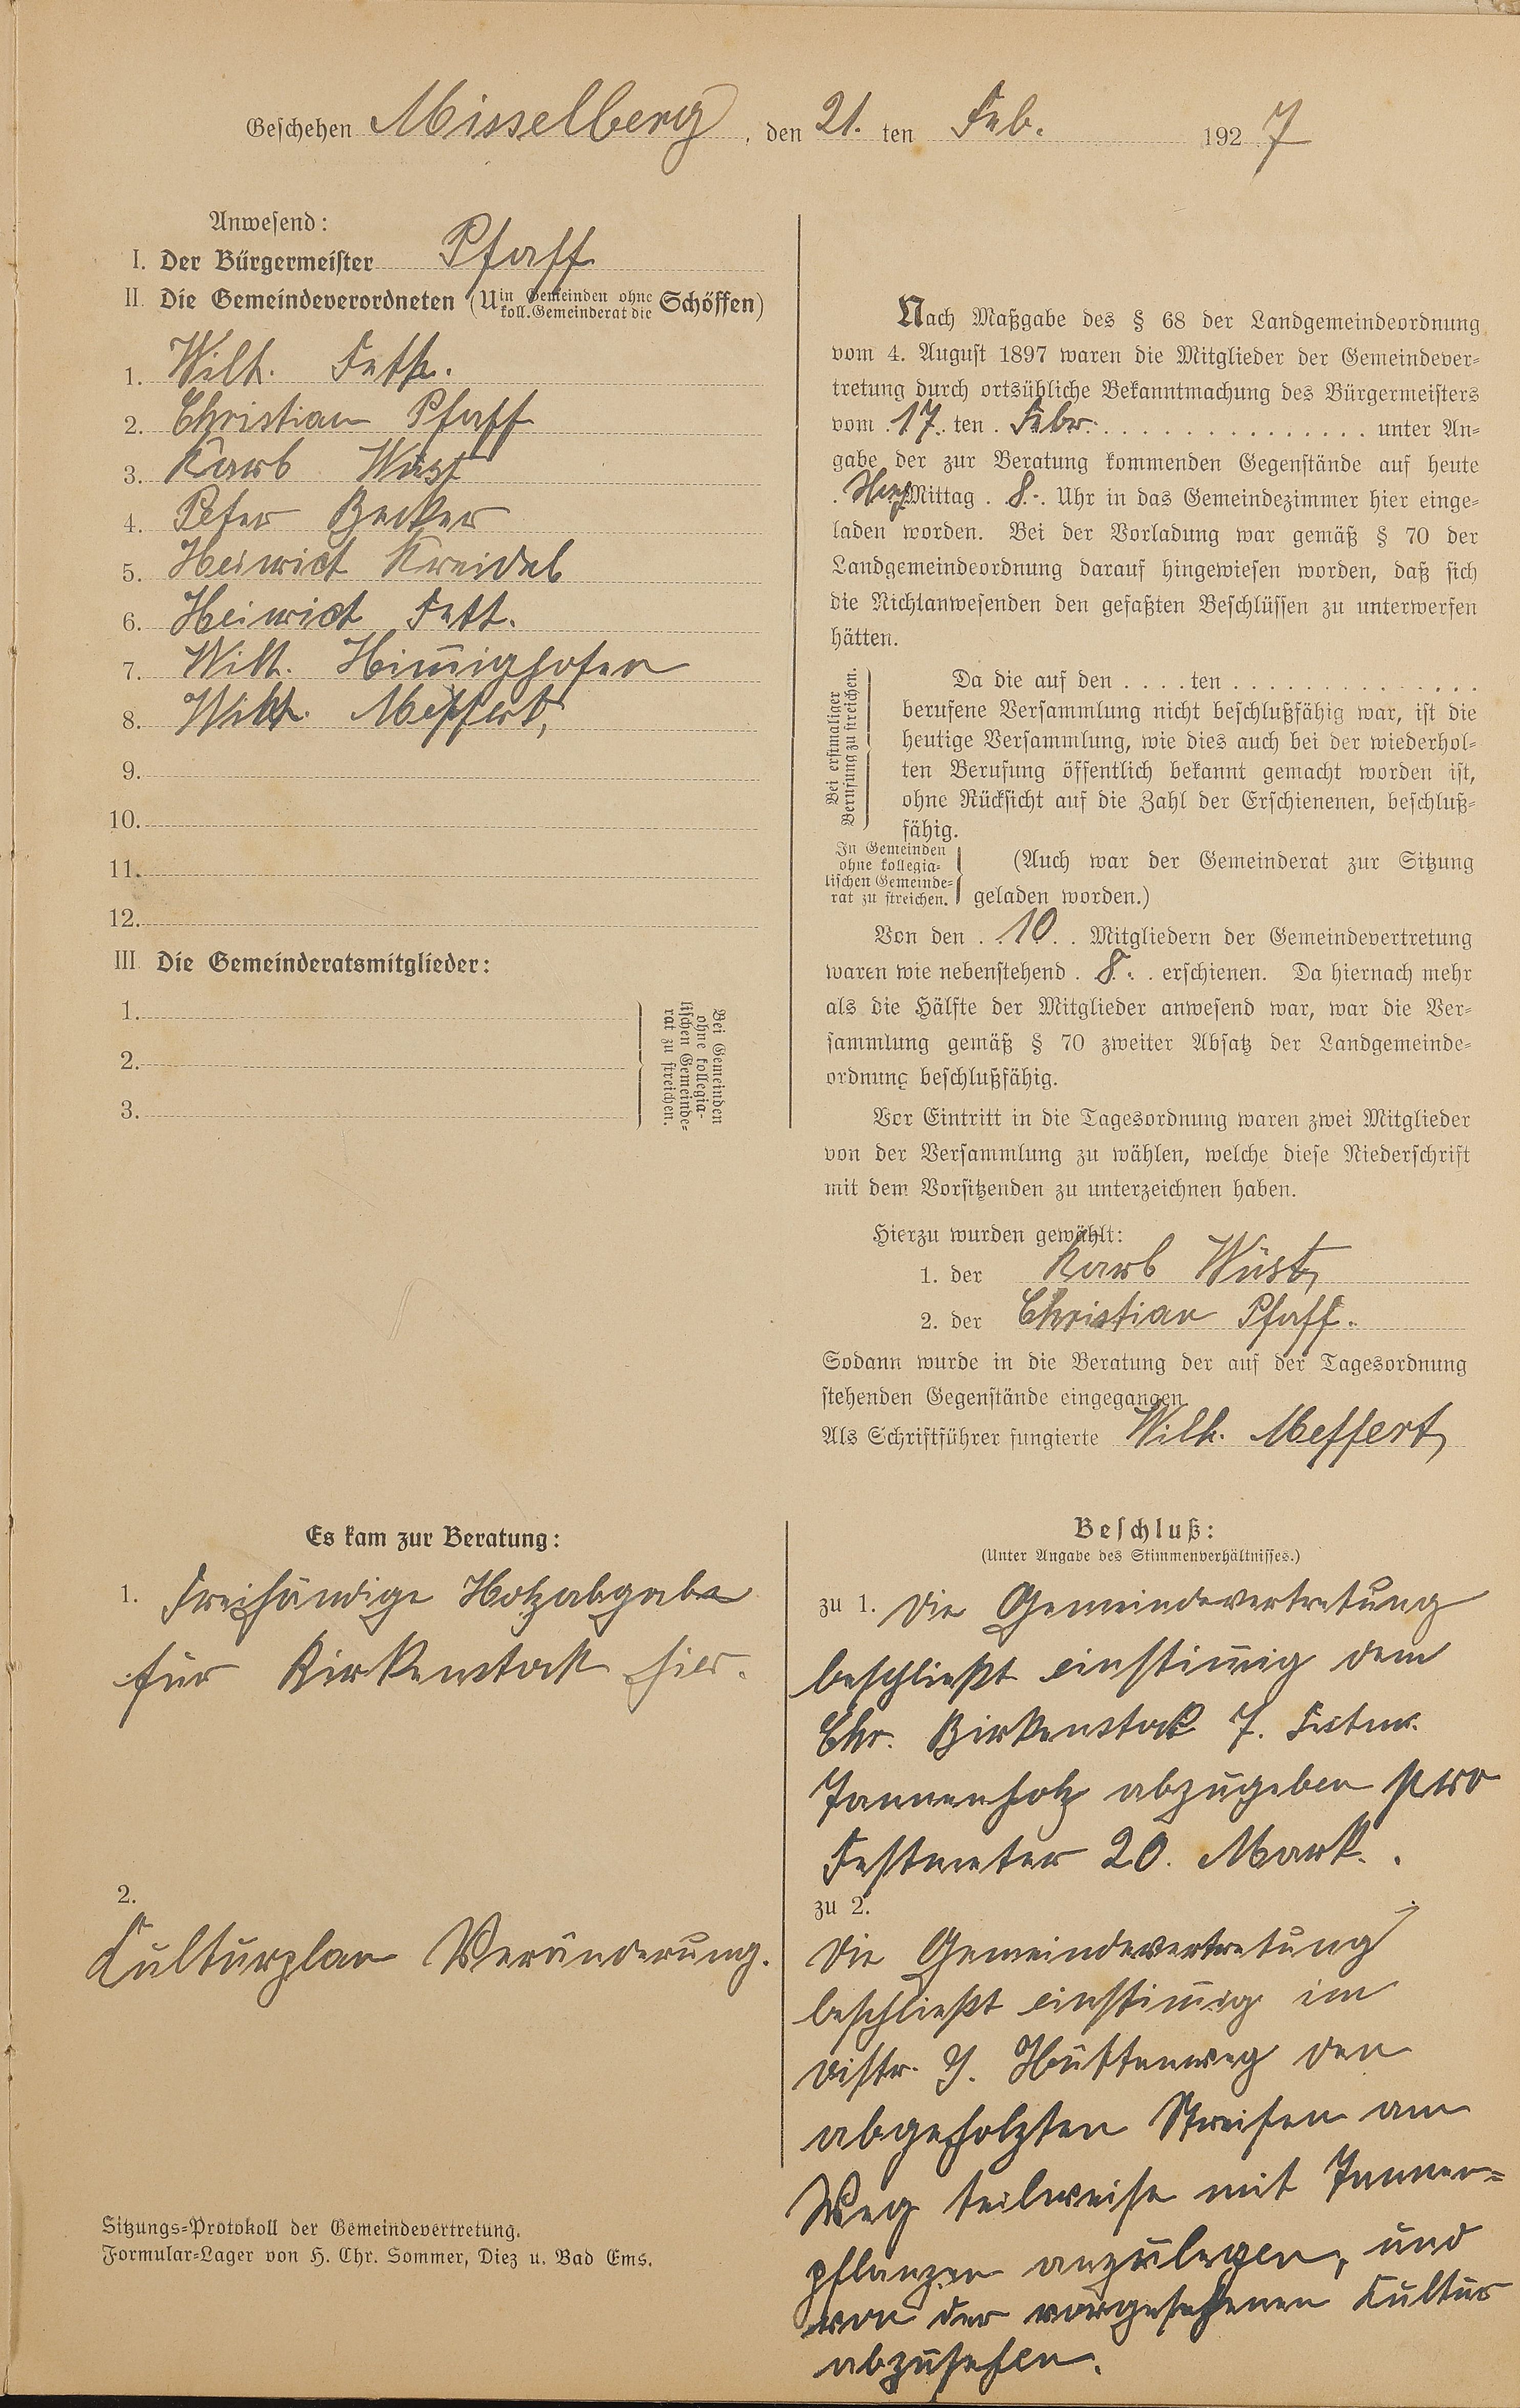 Geschehen Misselberg, den 21. ten Feb. 1927
Anwesend:
I. Der Bürgermeister Pfaff
II. Die Gemeindeverordneten (U in Gemeinden ohne koll. Gemeinderat die Schöffen)
1. Wilh. Feth.
2. Christian Pfaff
3. Karl Wüst
4. Peter Becker
5. Heinrich Kreidel
6. Heinrich Fett.
7. Wilh. Him̅ighofen
8. Wilh. Meffert,
9.
10.
11.
12.
III. Die Gemeinderatsmitglieder:
1.
2.
3.
Bei Gemeinden
ohne kollegia-
lischen Gemeinde-
rat zu streichen.
Nach Maßgabe des § 68 der Landgemeindeordnung
vom 4. August 1897 waren die Mitglieder der Gemeindever-
tretung durch ortsübliche Bekanntmachung des Bürgermeisters
vom 17. ten Febr. unter An-
gabe der zur Beratung kommenden Gegenstände auf heute
Mittag 8. Uhr in das Gemeindezimmer hier einge-
laden worden. Bei der Vorladung war gemäß § 70 der
Landgemeindeordnung darauf hingewiesen worden, daß sich
die Nichtanwesenden den gefaßten Beschlüssen zu unterwerfen
hätten.
Bei erstmaliger
Berufung zu streichen.
Da die auf den . . . . ten . . . . . . . . . . . . . .
berufene Versammlung nicht beschlußfähig war, ist die
heutige Versammlung, wie dies auch bei der wiederhol-
ten Berufung öffentlich bekannt gemacht worden ist,
ohne Rücksicht auf die Zahl der Erschienenen, beschluß-
fähig.
In Gemeinden
ohne kollegia-
lischen Gemeinde-
rat zu streichen.
(Auch war der Gemeinderat zur Sitzung
geladen worden.)
Von den 10 Mitgliedern der Gemeindevertretung
waren wie nebenstehend 8. erschienen. Da hiernach mehr
als die Hälfte der Mitglieder anwesend war, war die Ver-
sammlung gemäß § 70 zweiter Absatz der Landgemeinde-
ordnung beschlußfähig.
Vor Eintritt in die Tagesordnung waren zwei Mitglieder
von der Versammlung zu wählen, welche diese Niederschrift
mit dem Vorsitzenden zu unterzeichnen haben.
Hierzu wurden gewählt:
1. der Karl Wüst,
2. der Christian Pfaff.
Sodann wurde in die Beratung der auf der Tagesordnung
stehenden Gegenstände eingegangen
Als Schriftführer fungierte Wilh. Meffert,
Es kam zur Beratung:
1. Freihändige Holzabgabe
für Birkenstock hier.
2.
Kulturplan Veränderung.
Beschluß:
(Unter Angabe des Stimmenverhältnisses.)
zu 1. Die Gemeindevertretung
beschließt einstim̅ig dem
Chr. Birkenstock 7. Festm.
Tannenholz abzugeben pro
Festmeter 20. Mark.
zu 2.
Die Gemeindevertretung
beschließt einstim̅ig im
Distr. Hüttenweg den
abgeholzten Streifen am
Weg teilweise mit Tannen-
pflanzen anzulegen, und
von der vorgesehenen Kultur
abzusehen.
Sitzungs-Protokoll der Gemeindevertretung.
Formular-Lager von H. Chr. Sommer, Diez u. Bad Ems.